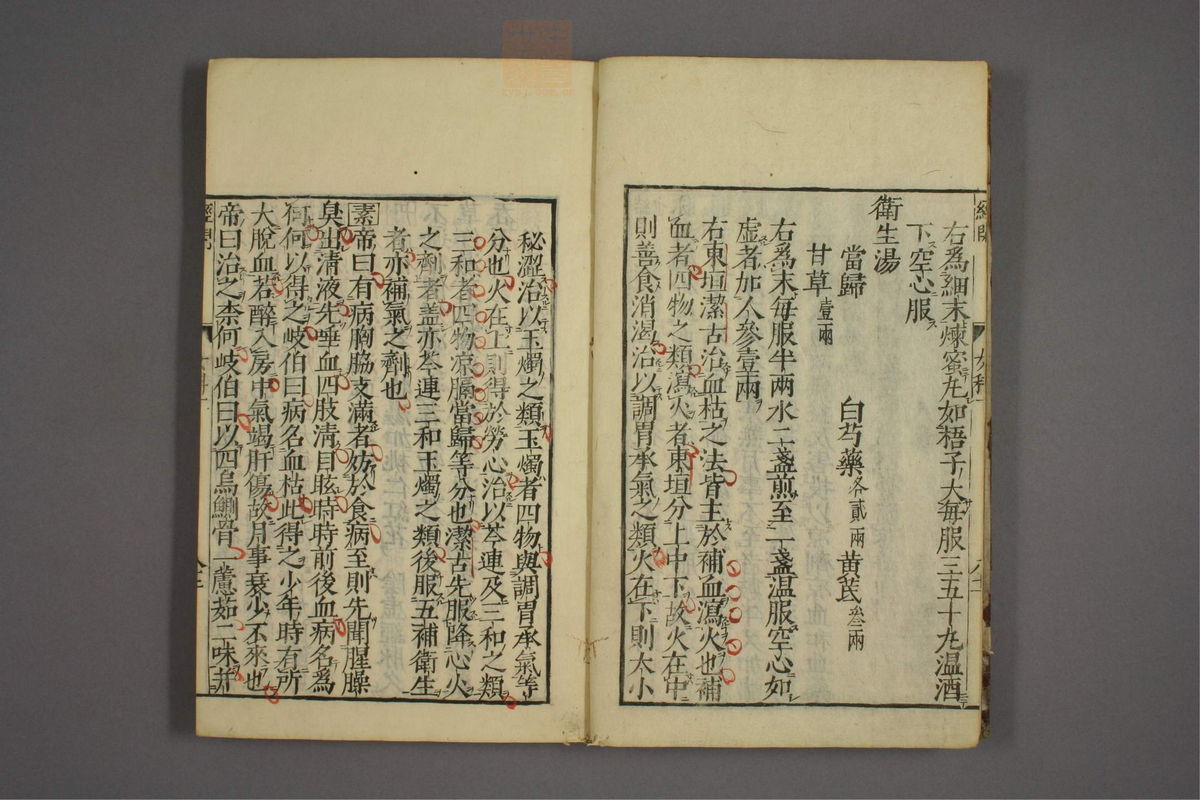 右爲細末煉蜜丸如梧子大每服三五十丸温酒
下空心服
衛生湯
當歸 白芍藥各貳兩 黃芪叁兩
甘草壹兩
右爲末每服半兩水二盞煎至一盞温服空心如
虛者加人參壹兩
右東垣潔古治血枯之法皆主於補血瀉火也補
血者四物之類瀉火者東垣分上中下故火在中
則善食消渴治以調胃承氣之類火在下則大小
秘澀治以玉燭之類玉燭者四物與調胃承氣等
分也火在上則得於勞心治以芩連及三和之類
三和者四物凉膈當歸等分也潔古先服降心火
之劑者蓋亦芩連三和玉燭之類後服五補衛生
者亦補氣之劑也
素帝曰有病胸脇支滿者妨於食病至則先聞腥臊
臭出清液先唾血四肢清目眩時時前後血病名爲
何何以得之岐伯曰病名血枯此得之少年時有所
大脫血若醉入房中氣竭肝傷故月事衰少不來也
帝曰治之柰何岐伯曰以四烏鰂骨一藘茹二味并